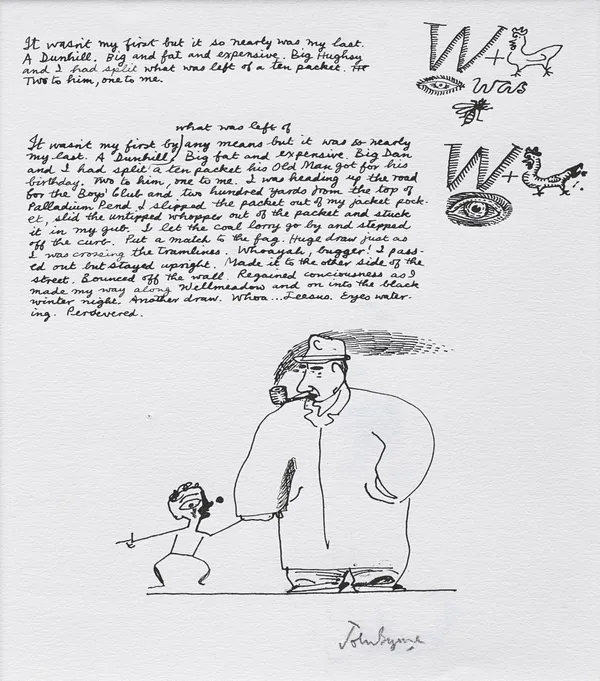 It wasn't my first but it so nearly was my last.
A Dunhill. Big and fat and expensive. Big Hughsy
and I had split what was left of a ten packet. He
Two to him, one to me.
W +
was
what was left of
It wasn't my first by any means but it was so nearly
my last. A Dunhill. Big fat and expensive. Big Dan
and I had split a ten packet his Old Man got for his
birthday. Two to him, one to me. I was heading up the road
for the Boys' Club and two hundred yards from the top of
Palladium Pend I slipped the packet out of my jacket pock-
et, slid the untipped whopper out of the packet and stuck
it in my gub. I let the coal lorry go by and stepped
off the curb. Put a match to the fag. Huge draw just as
I was crossing the tramlines. Whoayah, bugger! I pass-
ed out but stayed upright. Made it to the other side of the
street. Bounced off the wall. Regained conciousness as I
made my way along Wellmeadow and on into the black
winter night. Another draw. Whoa...Jeesus. Eyes water-
ing. Persevered.
W +
John Byrne